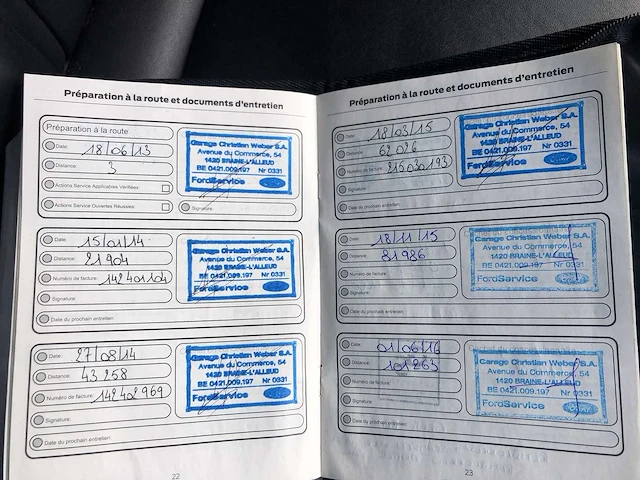 Préparation à la route et documents d'entretien
Préparation à la route
Date: 18/06/13
Distance: 3
Actions Service Applicables Vérifiées:
Actions Service Ouvertes Réussies:
Signature:
Garage Christian Weber S.A.
Avenue du Commerce, 54
1420 BRAINE-L'ALLEUD
BE 0421.009.197 Nr 0331
FordService
Ford
Date: 15/01/14
Distance: 21904
Numéro de facture: 142401104
Signature:
Date du prochain entretien:
Garage Christian Weber S.A.
Avenue du Commerce, 54
1420 BRAINE-L'ALLEUD
BE 0421.009.197 Nr 0331
FordService
Ford
Date: 27/08/14
Distance: 43258
Numéro de facture: 142402969
Signature:
Date du prochain entretien:
Garage Christian Weber S.A.
Avenue du Commerce, 54
1420 BRAINE-L'ALLEUD
BE 0421.009.197 Nr 0331
FordService
Ford
22
Préparation à la route et documents d'entretien
Date: 18/03/15
Distance: 62026
Numéro de facture: 215030193
Signature:
Date du prochain entretien:
Garage Christian Weber S.A.
Avenue du Commerce, 54
1420 BRAINE-L'ALLEUD
BE 0421.009.197 Nr 0331
FordService
Ford
Date: 18/11/15
Distance: 81986
Numéro de facture:
Signature:
Date du prochain entretien:
Garage Christian Weber S.A.
Avenue du Commerce, 54
1420 BRAINE-L'ALLEUD
BE 0421.009.197 Nr 0331
FordService
Ford
Date: 01/06/16
Distance: 101263
Numéro de facture:
Signature:
Date du prochain entretien:
Garage Christian Weber S.A.
Avenue du Commerce, 54
1420 BRAINE-L'ALLEUD
BE 0421.009.197 Nr 0331
FordService
Ford
23